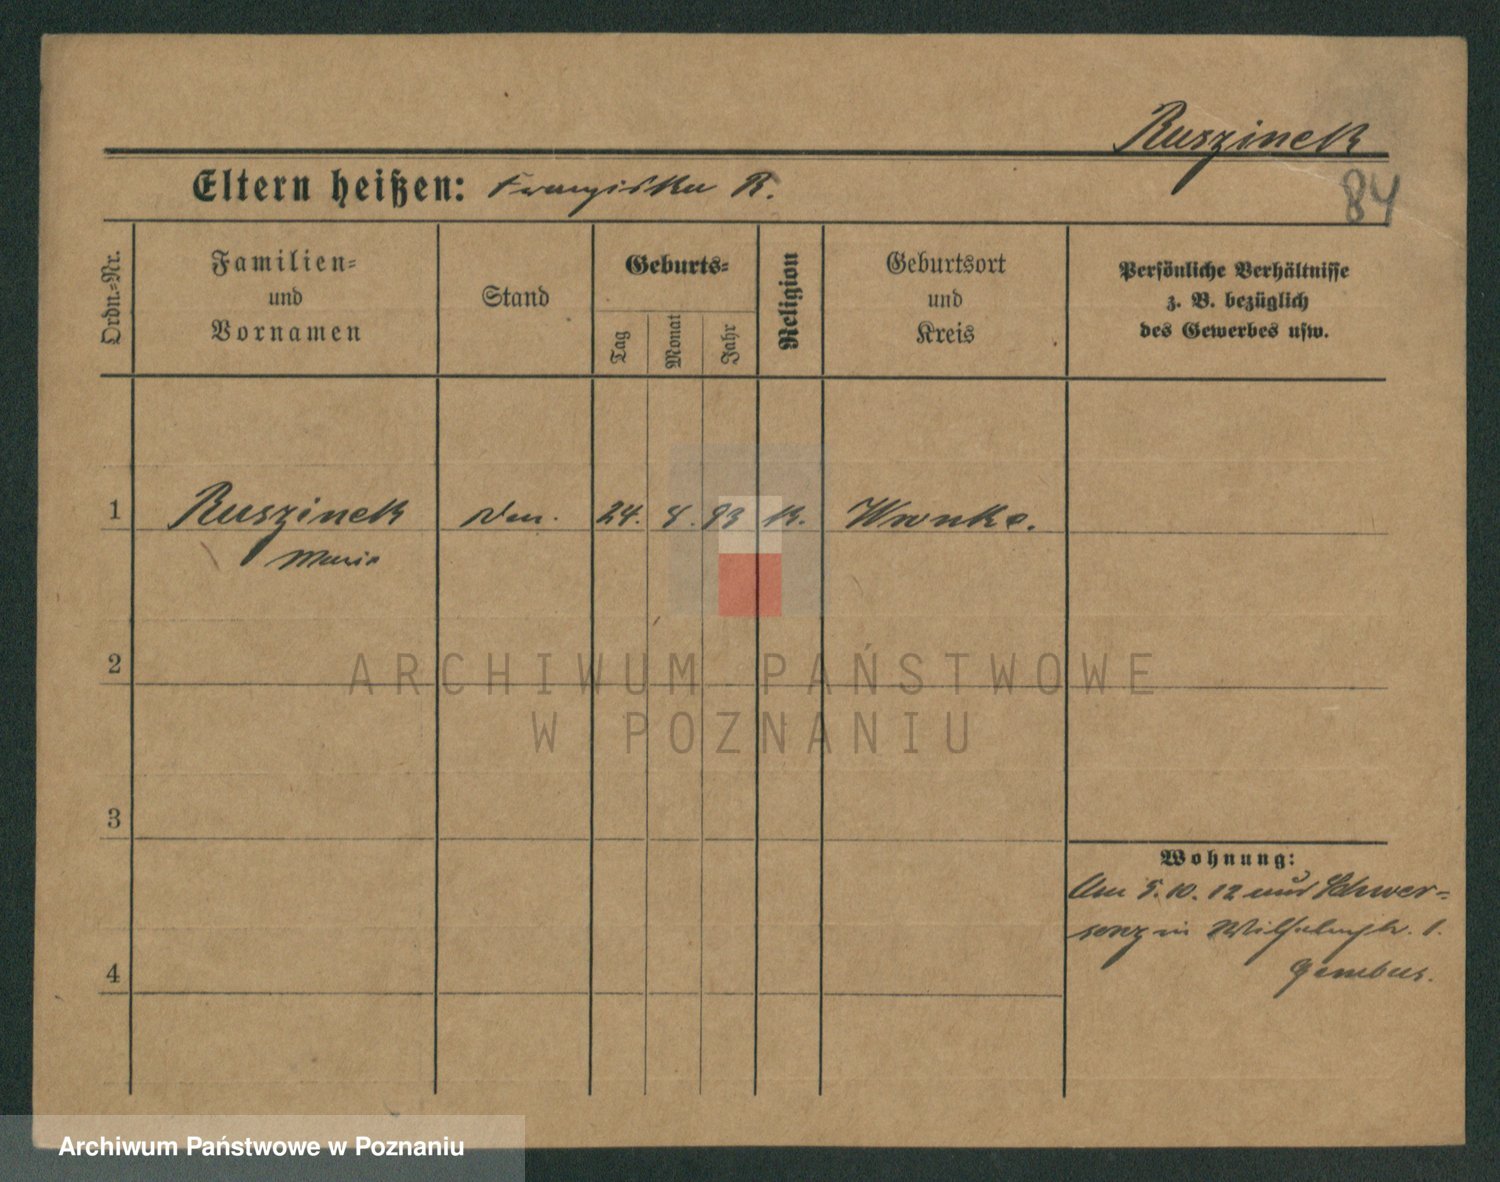 Ruszinek
84
Eltern heißen: Franziska R.
Ordn.=Nr.
Familien=
und
Vornamen
Stand
Geburts=
Tag
Monat
Jahr
Religion
Geburtsort
und
Kreis
Persönliche Verhältnisse
z. B. bezüglich
des Gewerbes usw.
1 Ruszinek 24. 8. 93 K. Wronke.
Maria
2
3
4
Wohnung:
Am 5.10.12 aus Schwer=
senz in Wilhelmstr. 1.
Gembus.
ARCHIWUM PAŃSTWOWE
W POZNANIU
Archiwum Państwowe w Poznaniu